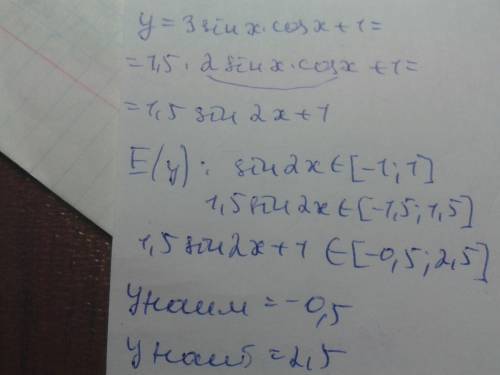 y = 3 sin x · cos x + 1 =
= 1,5 · 2 sin x · cos x + 1 =
= 1,5 sin 2x + 1
E(y): sin 2x ∈ [-1; 1]
1,5 sin 2x ∈ [-1,5; 1,5]
1,5 sin 2x + 1 ∈ [-0,5; 2,5]
y наим = -0,5
y наиб = 2,5